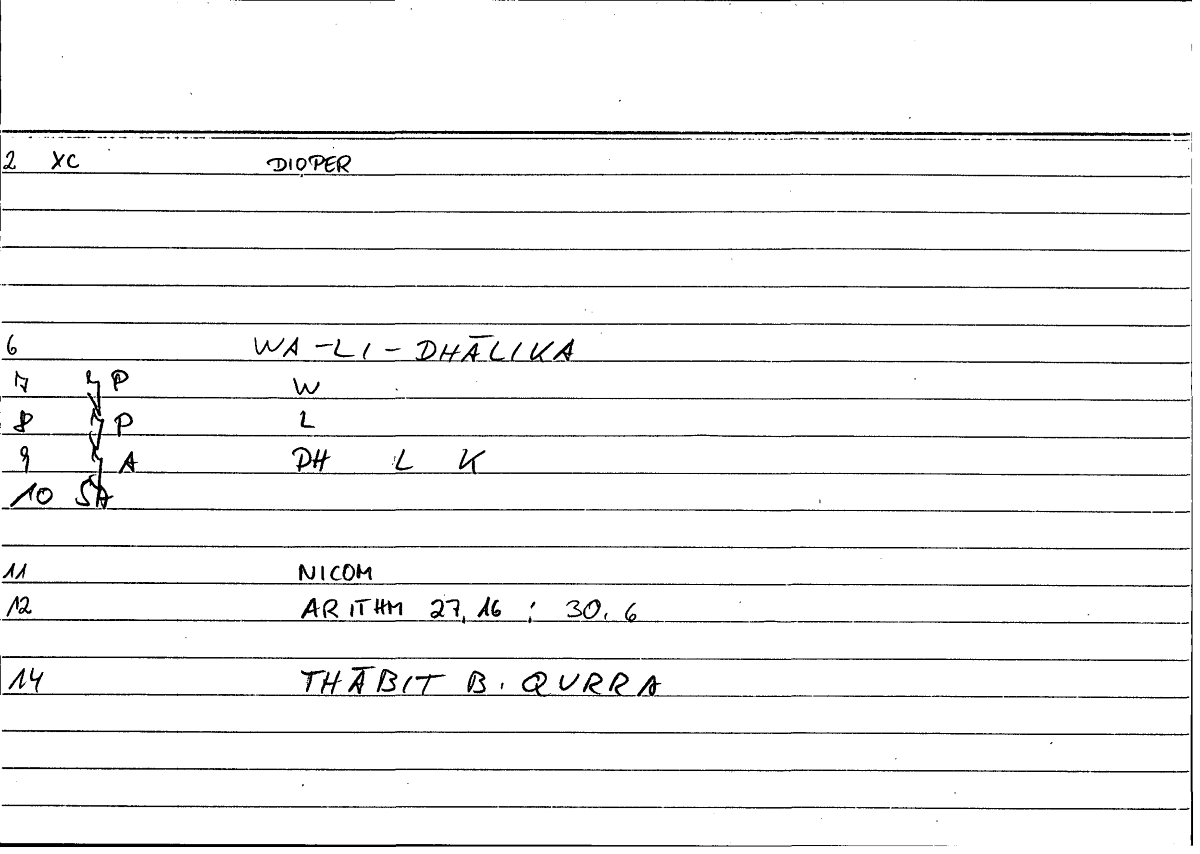 2 XC DIOPER
6 WA-LI-DHĀLIKA
7 P W
8 P L
9 A DH L K
10 SA
11 NICOM
12 ARITHM 27,16 ; 30.6
14 THĀBIT B. QURRA